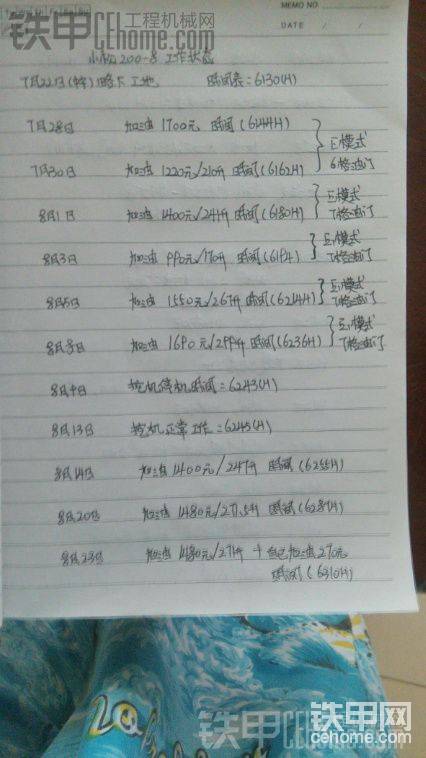 铁甲 工程机械网 CEHOME.COM
MEMO NO.
DATE / /
小松200-8 工作状态
7月22日 工地 时间表:6130(H)
7月28日 加油1700元 时间(6144H)
E模式
6格油门
7月30日 加油1220元/210升 时间(6162H)
8月1日 加油1400元/241升 时间(6180H) E模式
7格油门
8月3日 加油990元/170升 时间(6194) E模式
7格油门
8月5日 加油1550元/267升 时间(6214H) E模式
7格油门
8月8日 加油1690元/299升 时间(6236H) E模式
7格油门
8月9日 挖机停机时间:6243(H)
8月13日 挖机正常工作:6245(H)
8月14日 加油1400元/247升 时间(6255H)
8月20日 加油1480元/271.5升 时间(6287H)
8月23日 加油1480元/271升 + 自己加油270元
时间(6310H)
铁甲 工程机械网 CEHOME.COM
铁甲网
CEHOME.COM